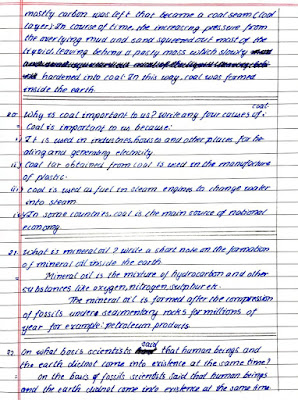 mostly carbon was left that became a coal seam (coal
layer). In course of time, the increasing pressure from
the overlying mud and sand squeezed out most of the
liquid leaving behind a pasty mass which slowly
hardened into coal. In this way, coal was formed
inside the earth.
20. Why is coal important to us? Write any four causes of coal.
Coal is important to us because:
i) It is used in industries, houses and other places for he-
ating and generating electricity.
ii) Coal tar obtained from coal is used in the manufacture
of plastic.
iii) Coal is used as fuel in steam engines to change water
into steam
iv) In some countries, coal is the main source of national
economy.
21. What is mineral oil? Write a short note on the formation
of mineral oil inside the earth.
Mineral oil is the mixture of hydrocarbon and other
substances like oxygen, nitrogen, sulphur etc.
The mineral oil is formed after the compression
of fossils under sedimentary rocks for millions of
year for example: petroleum products.
22. On what basis scientists said that human beings and
the earth did not come into existence at the same time?
On the basis of fossils scientists said that human beings
and the earth did not come into existence at the same time.